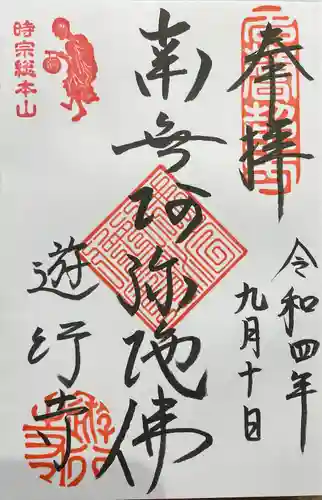 奉拝
令和四年
九月十日
南無阿弥陀佛
時宗総本山
遊行寺